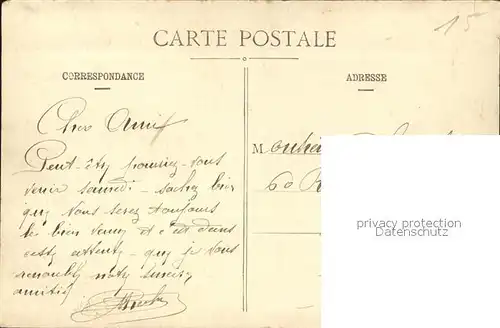 15
CARTE POSTALE
CORRESPONDANCE
ADRESSE
Cher Ami
Peut-être pourriez-vous
venir samedi - sachez bien
que Vous serez toujours
le bien venu et c'est dans
cette attente - que je vous
renouvelle notre sincère
amitié
M
60 R
privacy protection
www.ansichtskarten-center.de